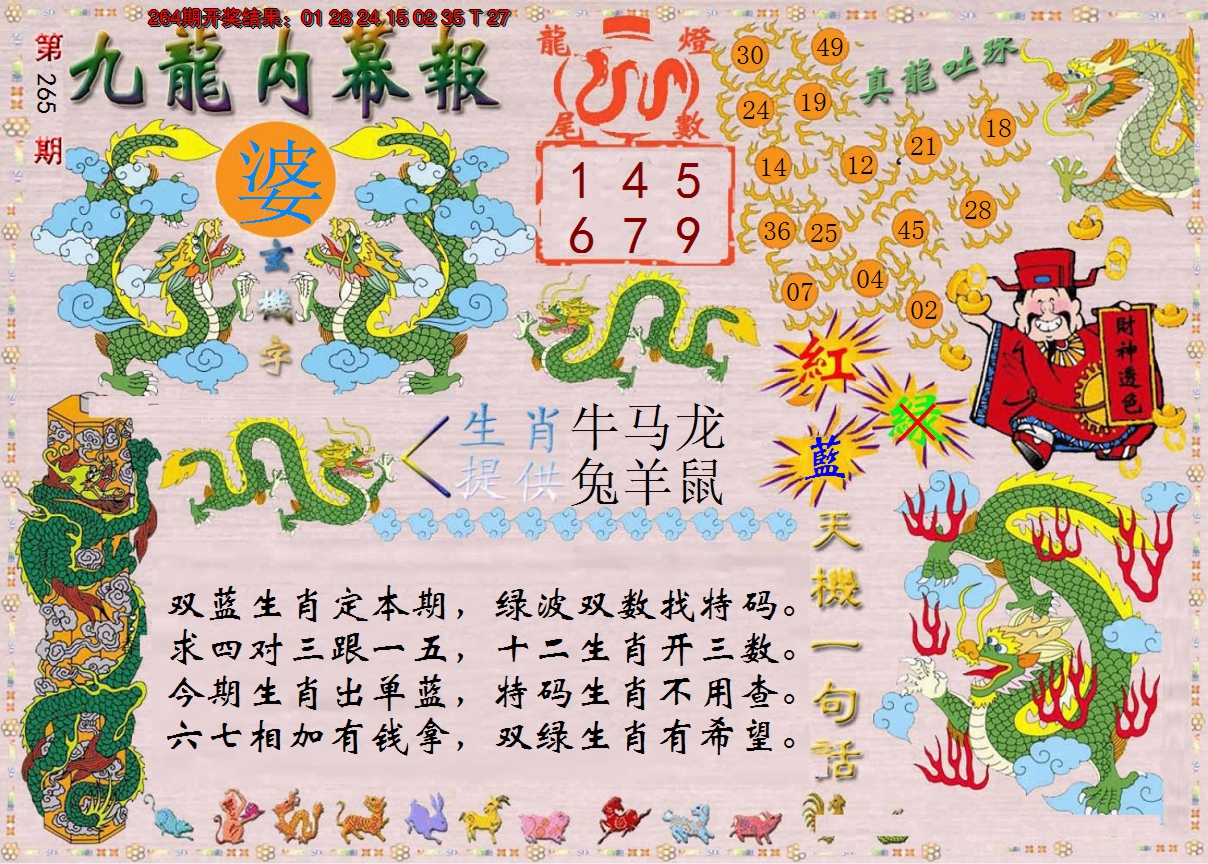 264期开奖结果：01 28 24 15 02 35 T 27
第
265
期
九龍内幕報
婆
玄
機
字
龍 燈
尾 數
1 4 5
6 7 9
真龍吐珠
30
49
24
19
14
12
21
18
36
25
45
28
07
04
02
紅
绿
藍
財神透色
生肖 牛马龙
提供 兔羊鼠
天機一句話
双蓝生肖定本期，绿波双数找特码。
求四对三跟一五，十二生肖开三数。
今期生肖出单蓝，特码生肖不用查。
六七相加有钱拿，双绿生肖有希望。